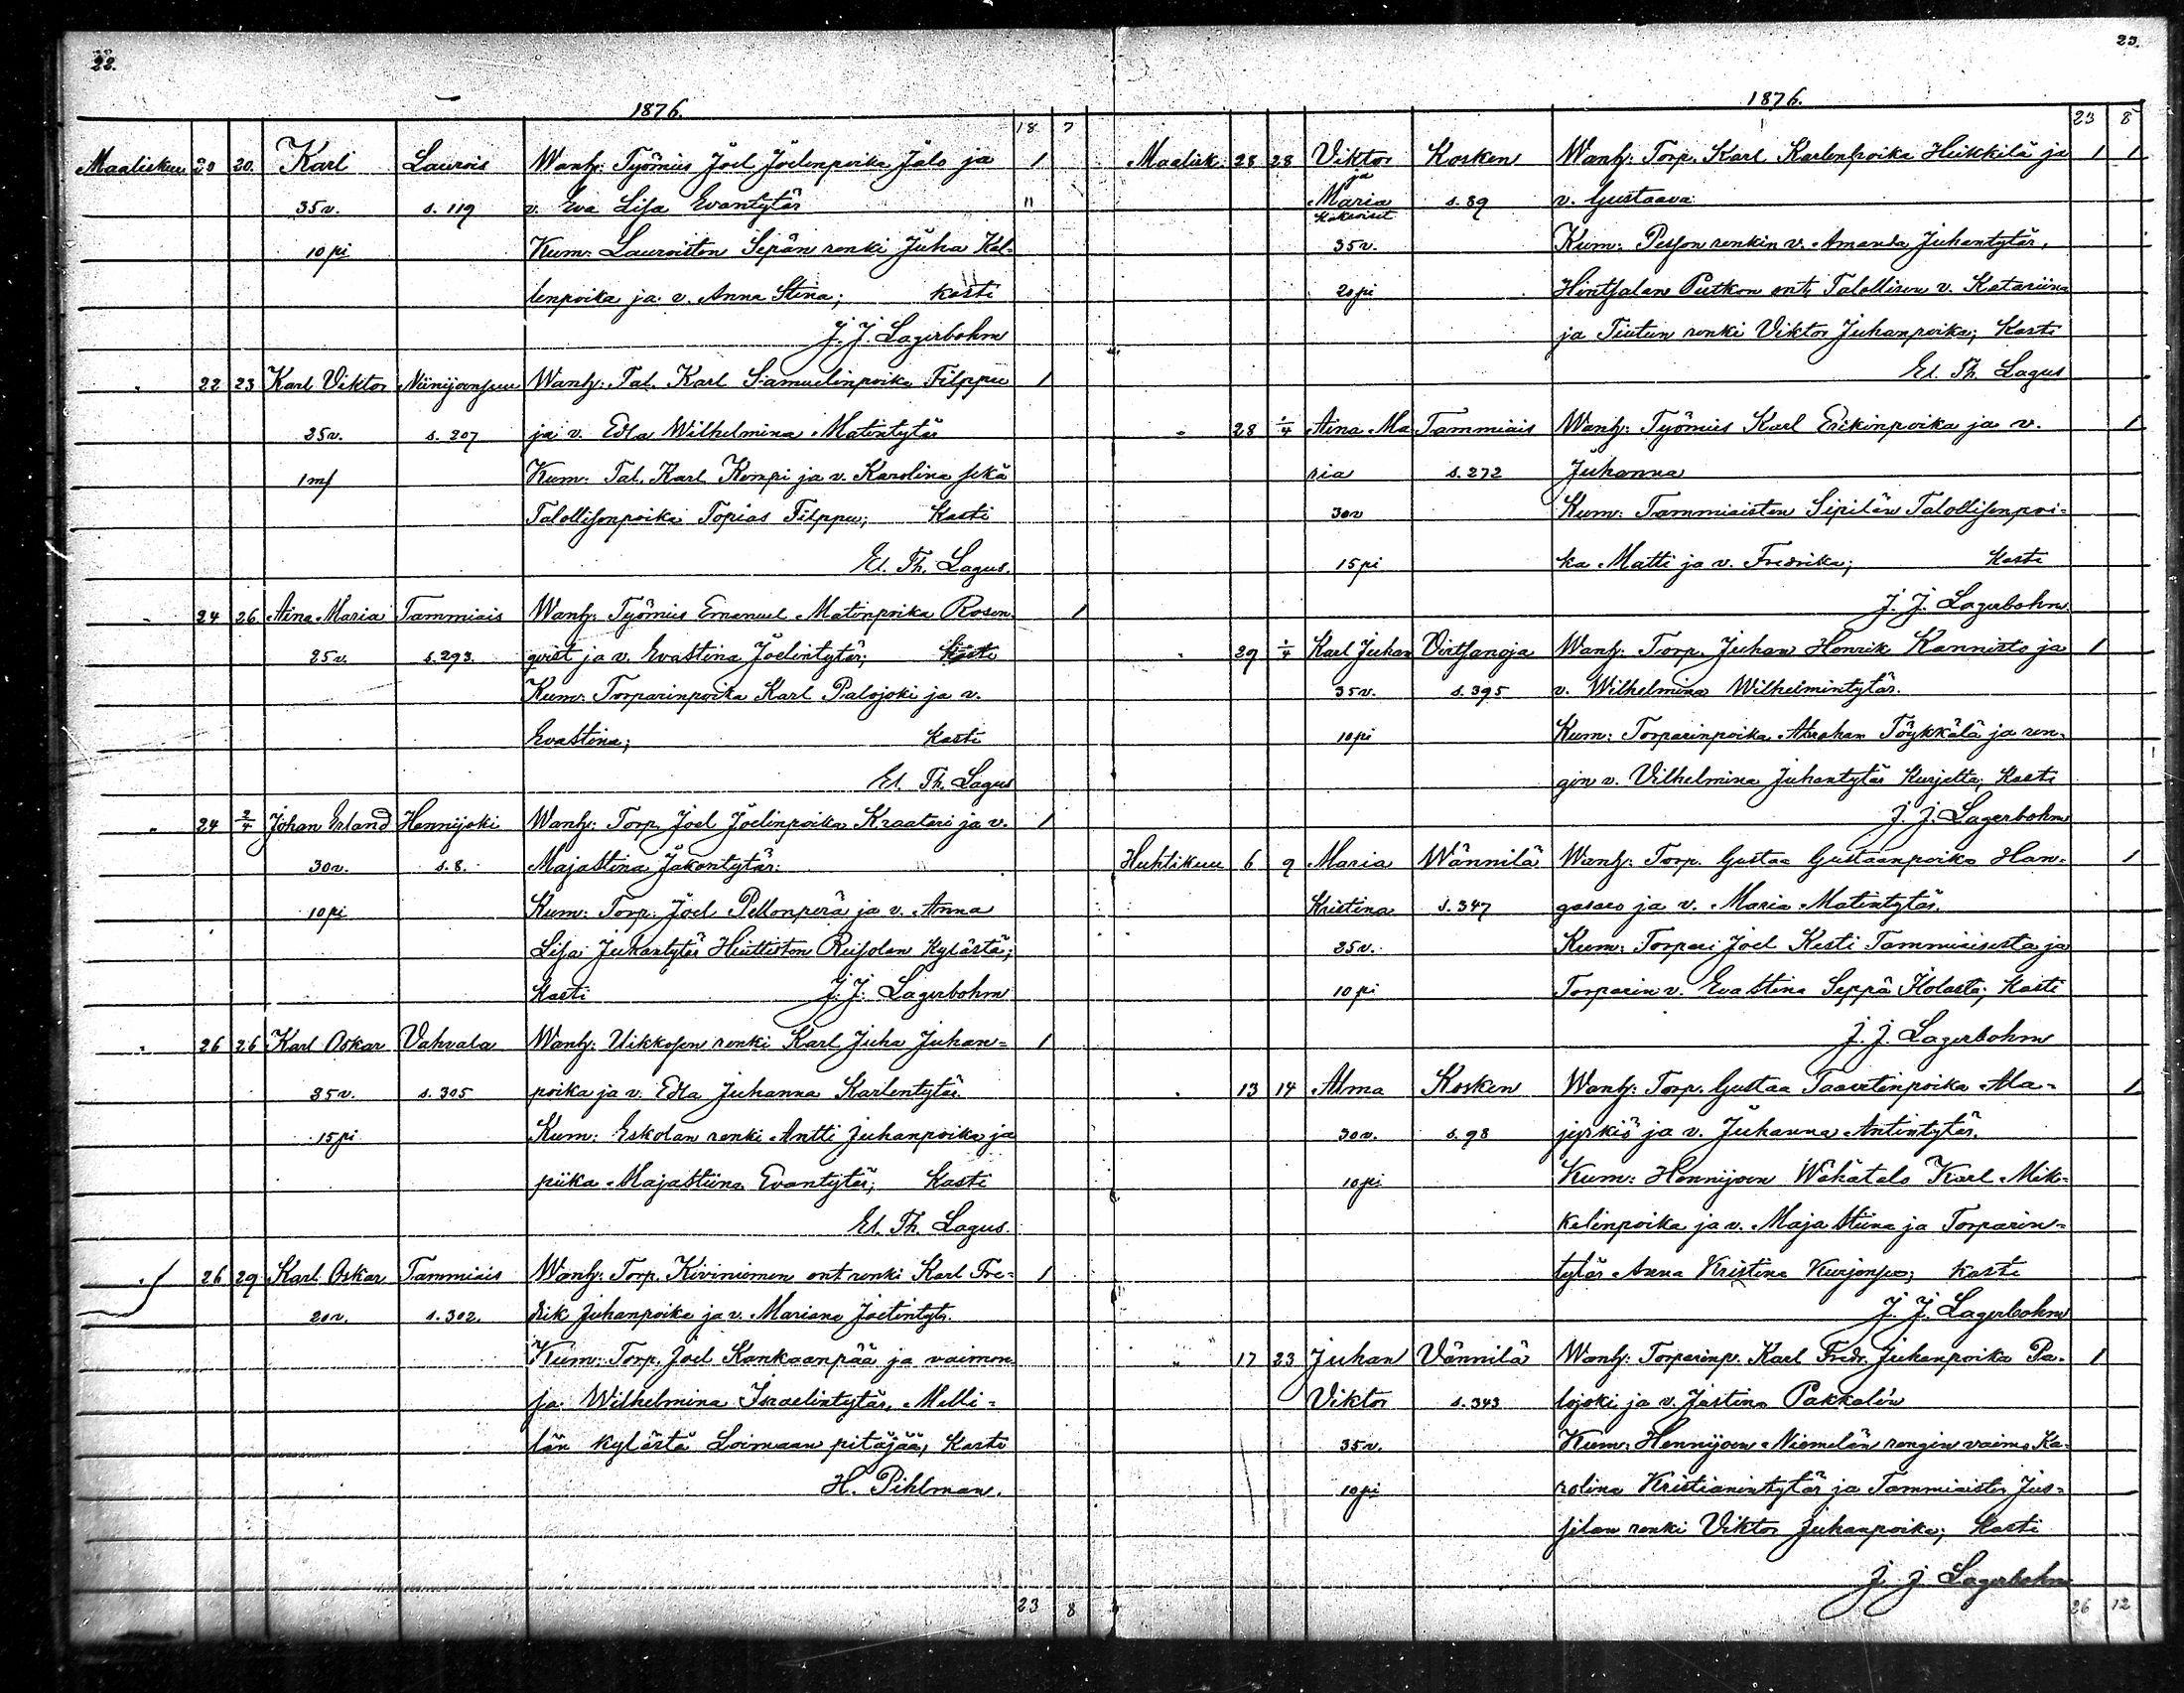 22.
1876.
18 7
Maaliskuu 20 20. Karl Laurois Wanh: Työmies Joel Joelinpoika Jalo ja 1
35 v. s. 119 v. Eva Lisa Evantytär "
10 pi Kum: Lauroisten Sepän renki Juha Kal-
lenpoika ja v. Anna Stina; kasti
J. J. Lagerbohm
" 22 23 Karl Viktor Niinijoensuu Wanh: Tal. Karl Samuelinpoika Filppu 1
25 v. s. 207 ja v. Edla Wilhelmina Matintytär
1 m Kum: Tal. Karl Kemppi ja v. Karolina sekä
Talollisenpoika Topias Filppu; Kasti
El. Th. Lagus.
" 24 26 Aina Maria Tammiais Wanh: Työmies Emanuel Matinpoika Rosen- 1
25 v. s. 293. qvist ja v. Evastina Joelintytär;
Kum: Torparinpoika Karl Palojoki ja v.
Evastina; Kasti
El. Th. Lagus
" 24 2/4 Johan Erland Hennijoki Wanh: Torp. Joel Joelinpoika Kraatari ja v. 1
30 v. s. 8. Majastina Jakontytär.
10 pi Kum: Torp. Joel Pellonperä ja v. Anna
Lisa Juhantytär Hiittiston Ruisolan Kylästä;
Kasti J. J. Lagerbohm
" 26 26 Karl Oskar Vahvala Wanh: Uikkosen renki Karl Juha Juhan- 1
35 v. s. 305 poika ja v. Edla Juhanna Karlentytär.
15 pi Kum: Eskolan renki Antti Juhanpoika ja
piika Majastiina Evantytär; Kasti
El. Th. Lagus.
" 26 29 Karl Oskar Tammiais Wanh: Torp. Kiviniemen ent renki Karl Fre- 1
20 v. s. 302. drik Juhanpoika ja v. Mariana Joelintytr.
Kum: Torp. Joel Kankaanpää ja vaimon-
sa Wilhelmina Israelintytär, Melli-
län kylästä Loimaan pitäjää, Kasti
H. Pihlman.
23 8
23.
1876.
23 8
Maalisk. 28 28 Viktor Kosken Wanh: Torp. Karl Karlenpoika Heikkilä ja 1 1
ja
Maria s. 89 v. Gustaava
Kaksoiset
35 v. Kum: renkin v. Amanda Juhantytär,
20 pi Hintsalan Putkon ent. Talollisen v. Katariina
ja Tiutun renki Viktor Juhanpoika; Kasti
El. Th. Lagus
" 28 1/4 Aina Ma- Tammiais Wanh: Työmies Karl Erikinpoika ja v. 1
ria s. 272 Juhanna
30 v Kum: Tammiaisten Sipilän Talollisenpoi-
15 pi ka Matti ja v. Fredrika; Kasti
J. J. Lagerbohm.
" 29 1/4 Karl Juhan Virtsanoja Wanh: Torp. Juhan Henrik Kannisto ja 1
35 v. s. 395 v. Wilhelmina Wilhelmintytär.
10 pi Kum: Torparinpoika Abraham Töykkälä ja ren-
gin v. Vilhelmina Juhantytär Kurjelta; Kasti
J. J. Lagerbohm
Huhtikuu 6 9 Maria Wännilä Wanh: Torp. Gustaa Gustaanpoika Han- 1
Kristina s. 347 gasaro ja v. Maria Matintytär.
25 v. Kum: Torpari Joel Kesti Tammiaisista ja
10 pi Torparin v. Evastina Seppä Ilolasta; Kasti
J. J. Lagerbohm
" 13 14 Alma Kosken Wanh: Torp. Gustaa Taavetinpoika Ala- 1
30 v. s. 98 jyrkiö ja v. Juhanna Antintytär.
10 pi Kum: Hennijoen Wähätalo Karl Mik-
kelinpoika ja v. Maja Stiina ja Torparin-
tytär Anna Kristina Kurjensuo; Kasti
J. J. Lagerbohm
" 17 23 Juhan Vännilä Wanh: Torparinp. Karl Fredr. Juhanpoika Pa- 1
Viktor s. 343 lojoki ja v. Justina Pakkalén
35 v. Kum: Hennijoen Niemelän rengin vaimo Ka-
10 pi rolina Kristianintytär ja Tammiaisten Jus-
silan renki Viktor Juhanpoika; Kasti
J. J. Lagerbohm
26 12